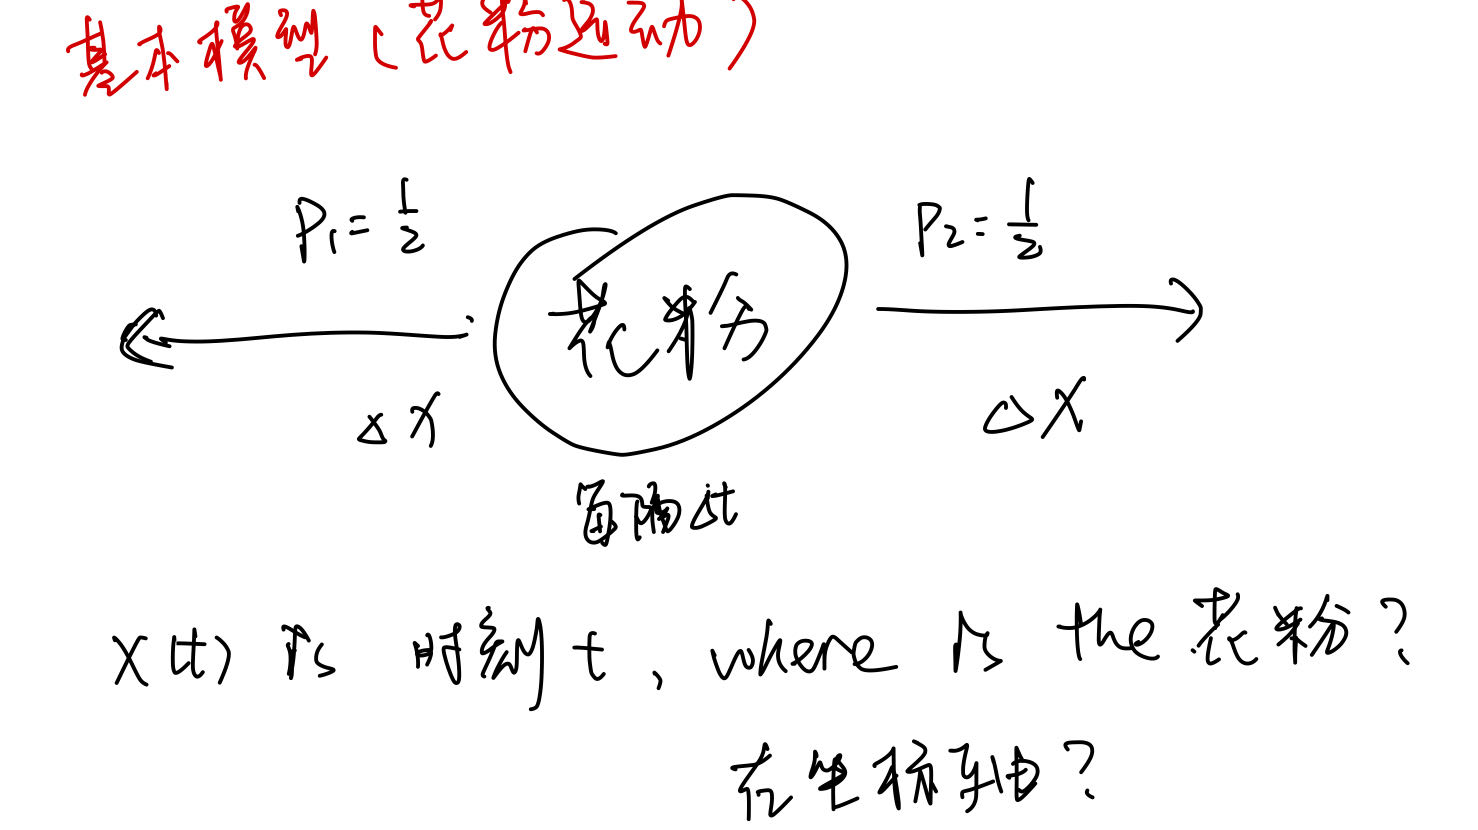 基本模型(花粉运动)
P₁=1/2 P₂=1/2
花粉
Δx Δx
每隔Δt
X(t) is 时刻t, where is the 花粉?
在坐标轴?